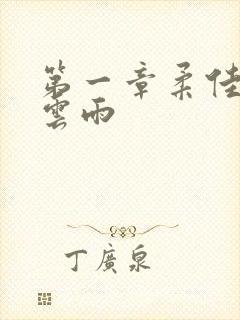 第一章柔佳
雲雨
丁廣泉